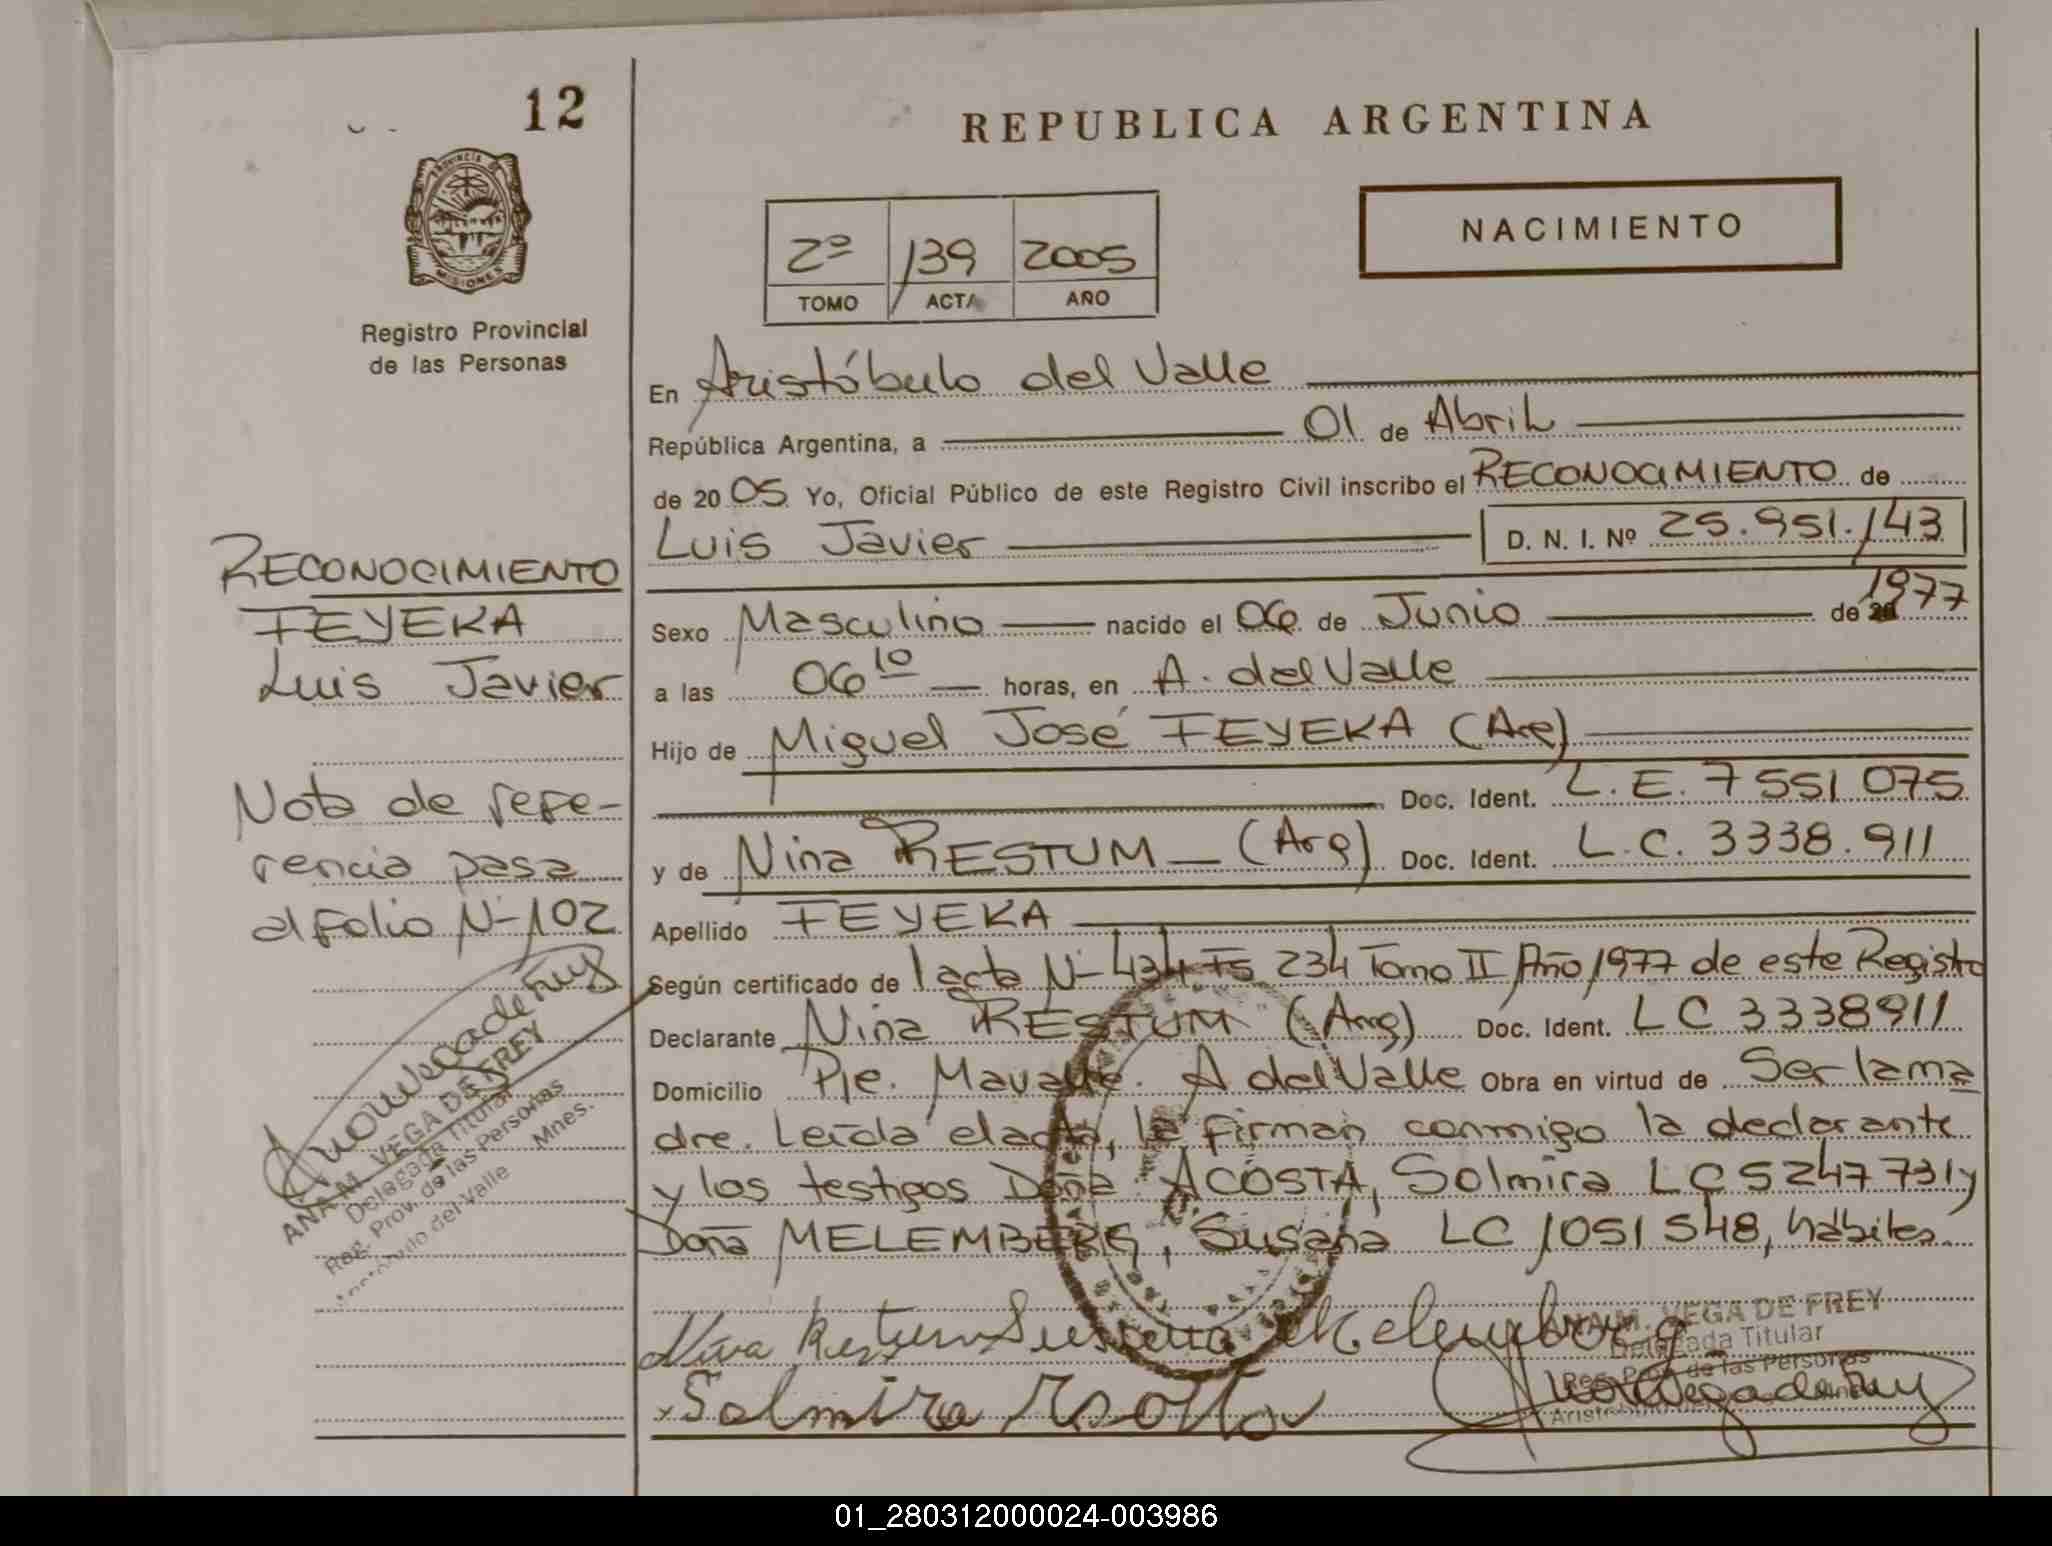 12
PROVINCIA DE
MISIONES
Registro Provincial
de las Personas
REPUBLICA ARGENTINA
NACIMIENTO
2º 139 2005
TOMO ACTA AÑO
En Aristóbulo del Valle
República Argentina, a 01 de Abril
de 20 05 Yo, Oficial Público de este Registro Civil inscribo el RECONOCIMIENTO de
Luis Javier D. N. I. Nº 25.951.143
Sexo Masculino nacido el 06 de Junio de 1977
a las 06 10 horas, en A. del Valle
Hijo de Miguel José FEYEKA (Arg)
Doc. Ident. L.E. 7551075
y de Nina RESTUM (Arg) Doc. Ident. L.C. 3338.911
Apellido FEYEKA
Según certificado de l acta Nº 434 Fº 234 Tomo II Año 1977 de este Registro
Declarante Nina RESTUM (Arg) Doc. Ident. LC 3338911
Domicilio Pje. Mavalle. A del Valle Obra en virtud de Ser la ma
dre. Leída el acta, la firman conmigo la declarante
y los testigos Doña ACOSTA, Solmira LC 5247731 y
Doña MELEMBERG, Susana LC 1051548, hábiles.
Nina Restum Susana Melemberg
Solmira Acosta
ANA M. VEGA DE FREY
Delegada Titular
Reg. Prov. de las Personas
RECONOCIMIENTO
FEYEKA
Luis Javier
Nota de refe-
rencia pasa
al folio Nº 102
ANA M. VEGA DE FREY
Delegada Titular
Reg. Prov. de las Personas
Aristóbulo del Valle Mnes.
01_280312000024-003986